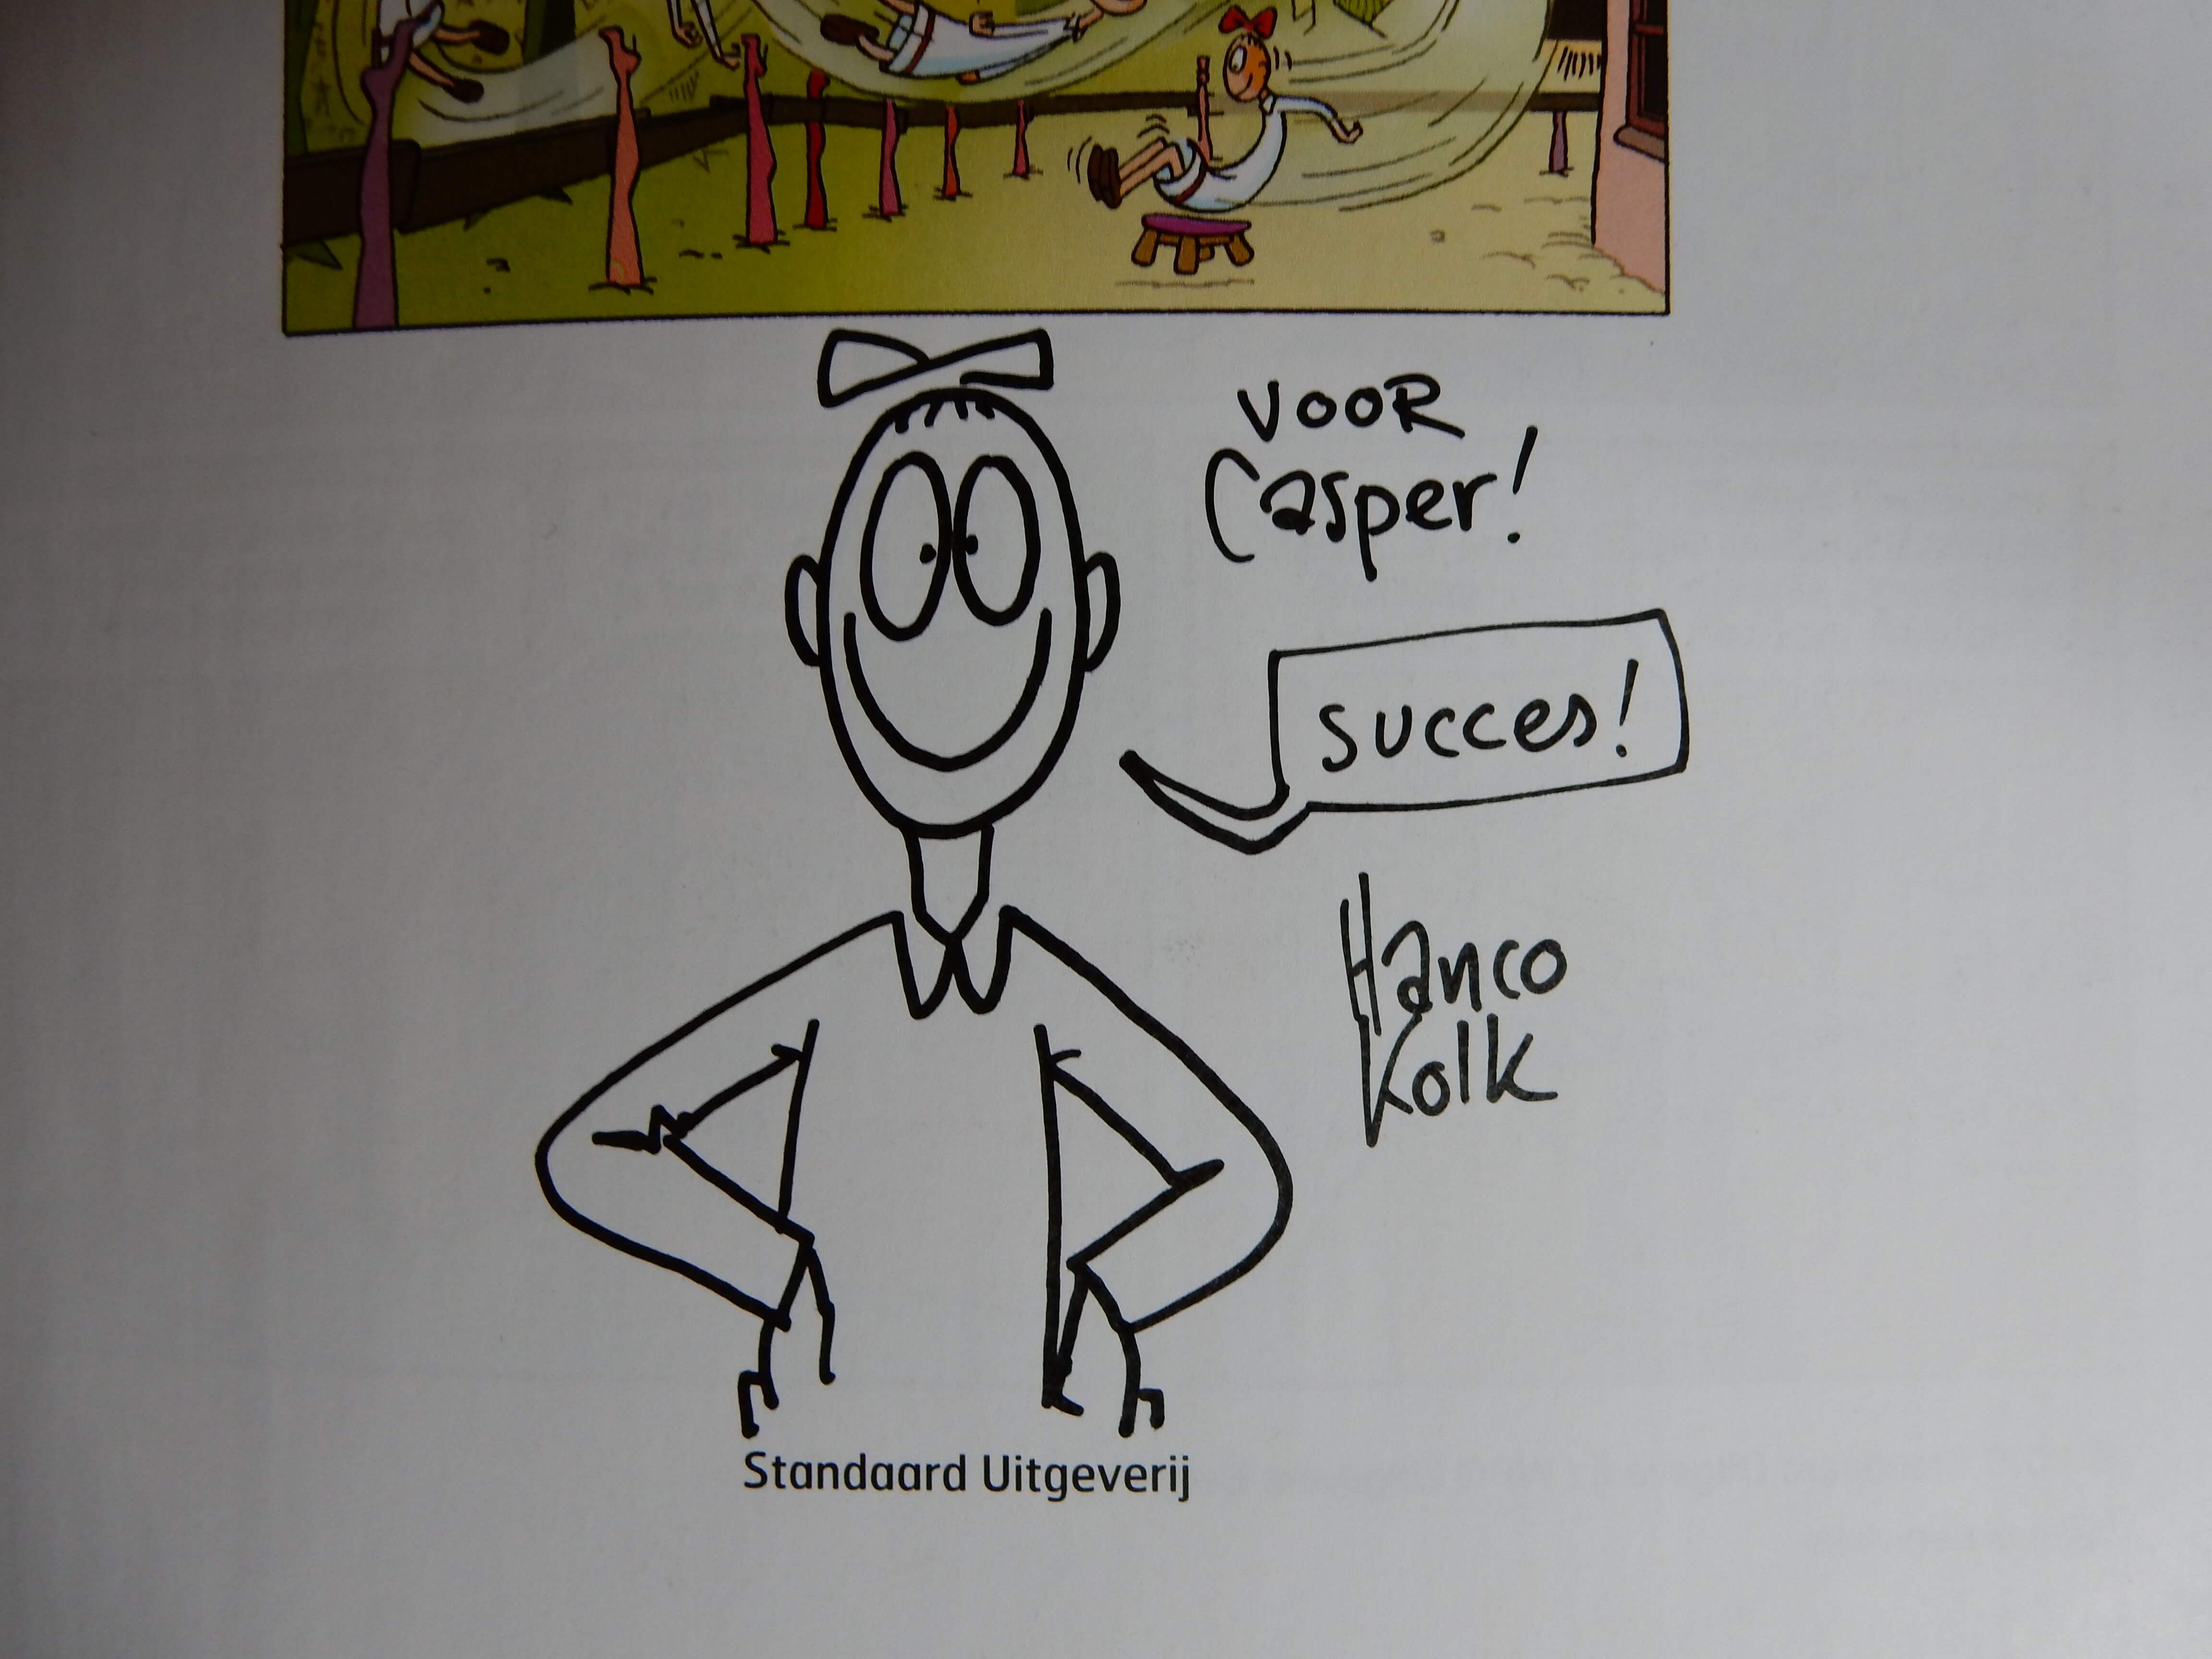 VOOR
Casper!
succes!
Hanco
Kolk
Standaard Uitgeverij